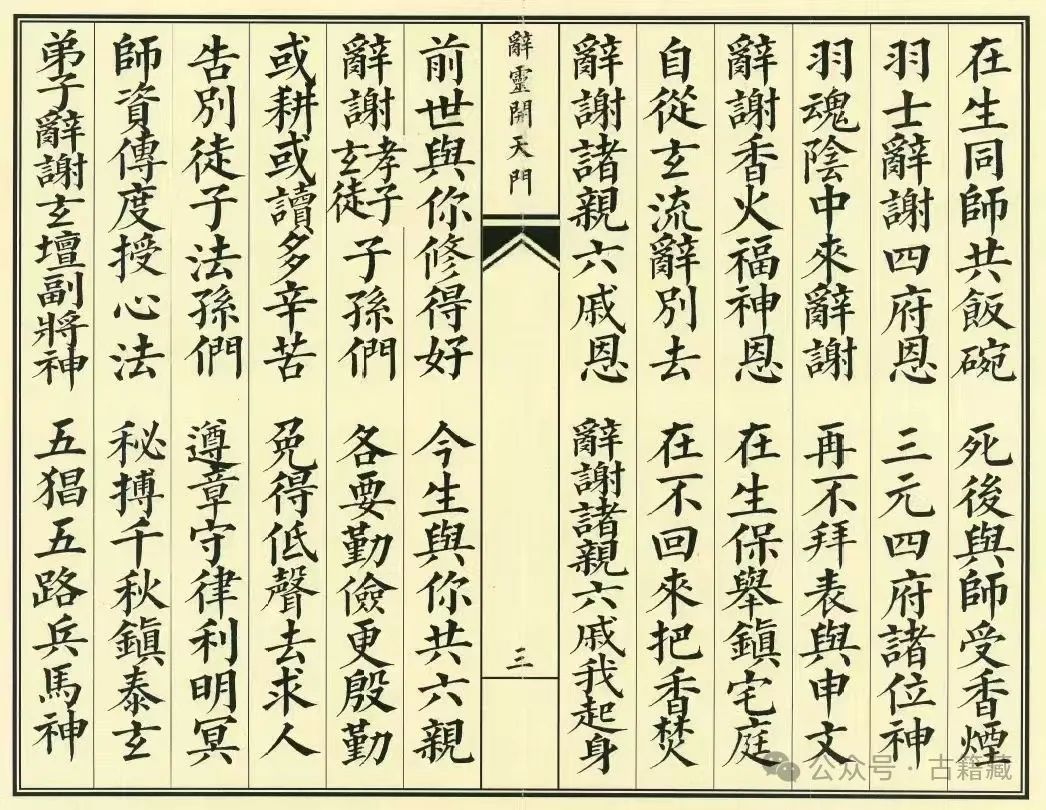 在生同師共飯碗 死後與師受香煙
羽士辭謝四府恩 三元四府諸位神
羽魂陰中來辭謝 再不拜表與申文
辭謝香火福神恩 在生保舉鎮宅庭
自從玄流辭別去 在不回來把香焚
辭謝諸親六戚恩 辭謝諸親六戚我起身
辭靈開天門
三
前世與你修得好 今生與你共六親
辭謝孝子玄徒子孫們 各要勤儉更殷勤
或耕或讀多辛苦 免得低聲去求人
告別徒子法孫們 遵章守律利明冥
師資傳度授心法 秘搏千秋鎮泰玄
弟子辭謝玄壇副將神 五猖五路兵馬神
公众号·古籍藏